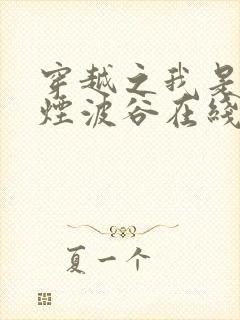 穿越之我是
煙波谷在綫
夏一个